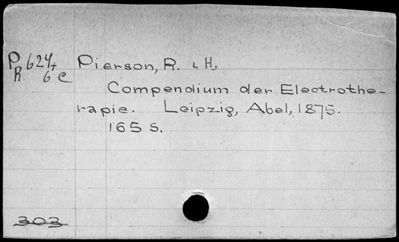 P 624 Pierson, R. H.
R 6c
Compendium der Electrothe-
rapie. Leipzig, Abel, 1875.
165 S.
303